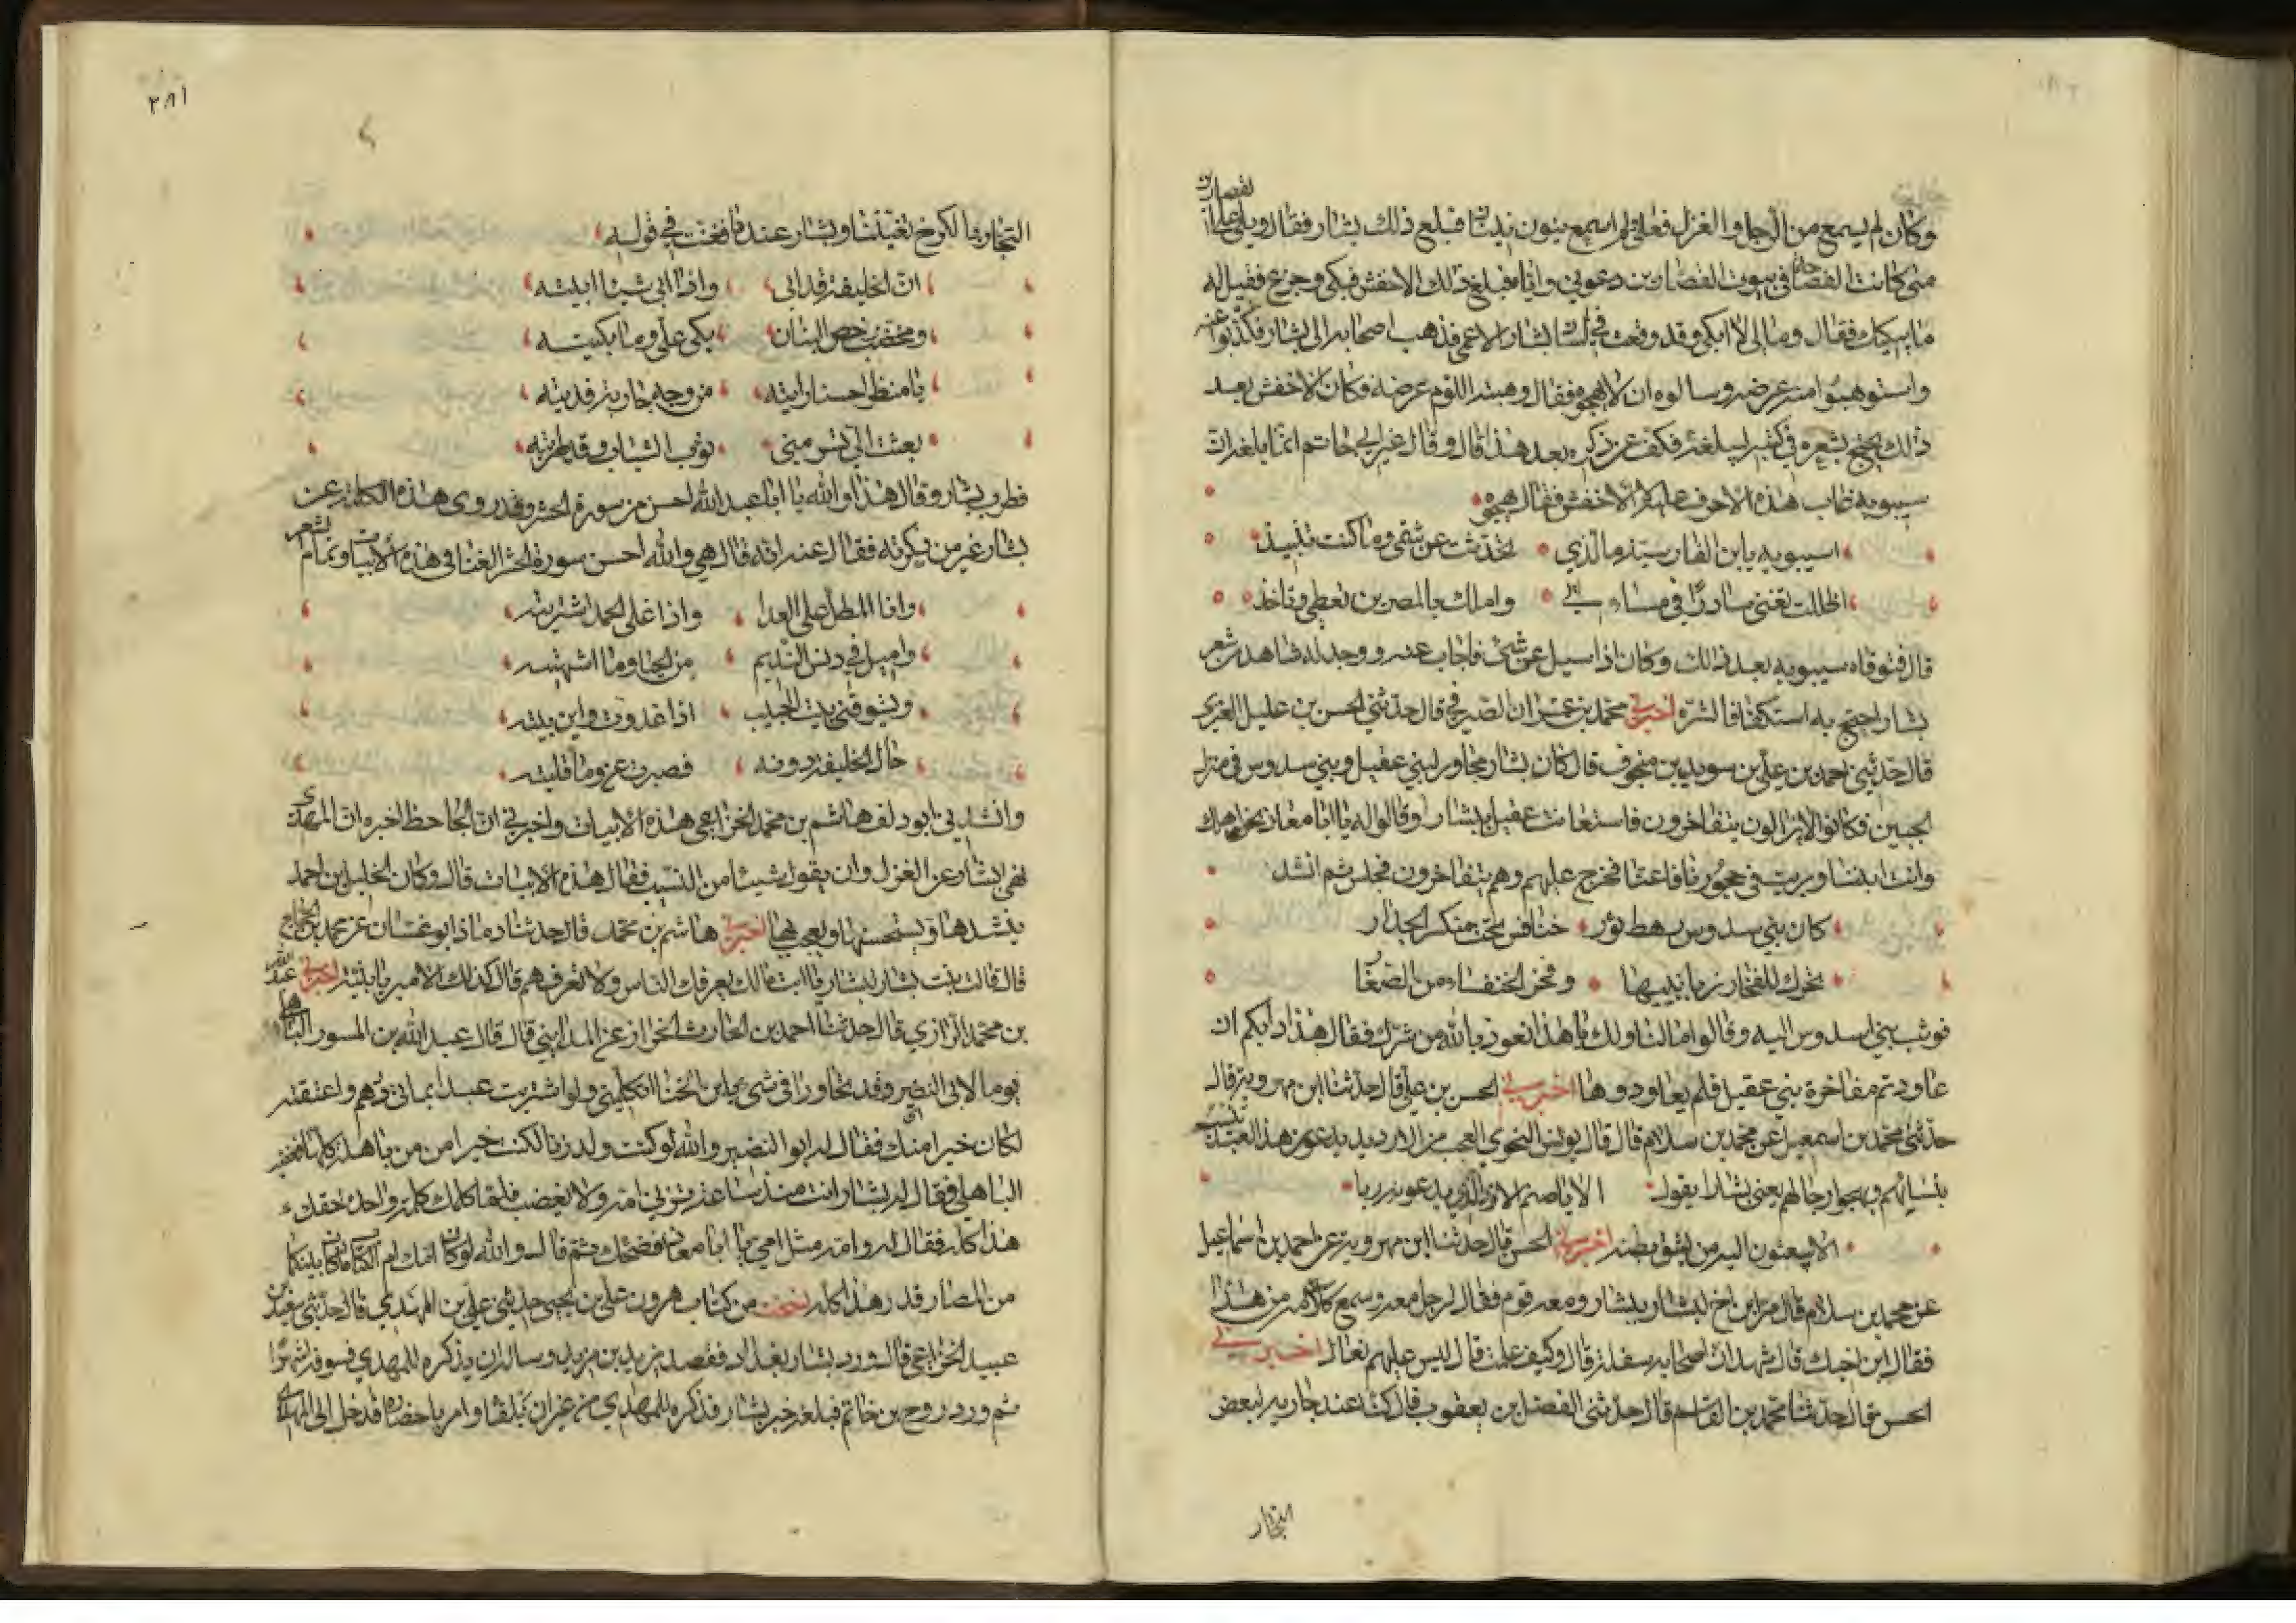 وكان لم يسمع من الوجل والغزل فعلى ولم اسمع بنون نينان فبلغ ذلك بشار فقال ويلى على القصارين
متى كانت الفصاحة في بيوت القصارين دعوني واياه فبلغ ذلك الاخفش فبكى وجزع فقيل له
ما يبكيك فقال وما لي لا ابكي وقد وقعت في لسان بشار الاعمى فذهب اصحابه الى بشار فكذبوا عنه
واستوهبوا منه عرضه وسالوه ان لا يهجوه فقال وهبته للؤم عرضه فكان الاخفش بعد
ذلك يحتج بشعره في كتبه ليبلغه فكف عن ذكره بعد هذا قال وقال غير ابي حاتم انما بلغه ان
سيبويه عاب هذه الاحرف عليه لا الاخفش فقال يهجوه
اسيبويه يا ابن الفارسية ما الذي تحدثت عن شتمي وما كنت تنبذ
اظلت تغني سادرا في مساءتي وامك بالمصرين تعطي وتاخذ
قال فتوقاه سيبويه بعد ذلك وكان اذا سيل عن شئ فاجاب عنه ووجد له شاهد من شعر
بشار احتج به استكفافا لشره اخبرني محمد بن عمران الصيرفي قال حدثني الحسن بن عليل العنزي
قال حدثني احمد بن علي بن سويد بن منجوف قال كان بشار مجاور لبني عقيل وبني سدوس في منزل
الحيين فكانوا لا يزالون يتفاخرون فاستعانت عقيل ببشار وقالوا له يا ابا معاذ نحن اهلك
وانت ابننا وربيت في حجورنا فاعنا فخرج عليهم وهم يتفاخرون فجلس ثم انشد
كان بني سدوس رهط ثور خنافس تحت منكسر الجدار
تحرك للفخار زبانييها وفخر الخنفساء من الصغار
فوثب بني سدوس اليه وقالوا ما لنا ولك يا هذا نعوذ بالله من شرك فقال هذا دابكم ان
عاودتم مفاخرة بني عقيل فلم يعاودوها اخبرني الحسن بن علي قال حدثنا ابن مهرويه قال
حدثني محمد بن اسمعيل عن محمد بن سلام قال قال يونس النحوي العجب من الازد يدعون هذا العبد ينسب
بنسائهم ويهجوا رجالهم يعني بشارا يقول الا يا صنم الازد الذي يدعونه ربا
الا يبعثون اليه من يشق بطنه اخبرني الحسن قال حدثنا ابن مهرويه عن احمد بن اسماعيل
عن محمد بن سلام قال مر ابن اخ لبشار ببشار ومعه قوم فقال لرجل معه وسمع كلامه من هذا
فقال ابن اخيك قال اشهد ان اصحابه سفلة قال وكيف علمت قال ليس عليهم نعال اخبرني
الحسن قال حدثنا محمد بن القاسم قال حدثني الفضل بن يعقوب قال كنت عند جارية لبعض
التجار
التجار بالكرخ تغنينا وبشار عندنا فغنت في قوله
ان الخليفة قد ابى واذا ابى شيئا ابيته
ومخضب رخص البنان بكى علي وما بكيته
يا منظرا حسنا رايته من وجه جارية فديته
بعثت الي تسومني ثوب الشباب وقد طويته
فطرب بشار وقال هذا والله يا ابا عبد الله احسن من سورة الحشر وقد روى هذه الكلمة عن
بشار غير من ذكرته فقال عنه انه قال هي والله احسن من سورة الحشر الغنا في هذه الابيات وتمام الشعر
وانا المطل على العدا واذا غلى الحمد اشتريته
واميل في دنس النديم من الحيا وما اشتهيته
ويشوقني بيت الحبيب اذا غدوت واين بيته
حال الخليفة دونه فصبرت عنه وما قليته
وانشدني ابو دلف هاشم بن محمد الخزاعي هذه الابيات واخبرني ان الجاحظ اخبره ان المهدي
نهى بشار عن الغزل وان يقول شيئا من النسيب فقال هذه الابيات قال وكان الخليل بن احمد
ينشدها ويستحسنها ويعجب بها اخبرني هاشم بن محمد قال حدثنا دماذ ابو غسان عن محمد بن الحجاج
قال قالت بنت بشار لبشار يا ابت ما لك يعرفك الناس ولا تعرفهم قال كذلك الامير يا بنية اخبرني عبد الله
بن محمد الرازي قال حدثنا احمد بن الحارث الخراز عن المدايني قال قال عبد الله بن المسور الباهلي
يوما لابي النضير وقد تحاورا في شي يا ابن اللخنا اتكلمني ولو اشتريت عبدا بمائتي درهم واعتقته
لكان خيرا منك فقال له ابو النضير والله لو كنت ولد زنا لكنت خيرا من باهلة كلها فغضب
الباهلي فقال له بشار انت منذ ساعة تزني امه ولا يغضب فلما كلمك كلمة واحدة لحقك
هذا كله فقال له وامه مثل امي يا ابا معاذ فضحك ثم قال والله لو كانت امك ام الكتاب ما كان بينكما
من المصارمة قدر هذا كله نسخت من كتاب هرون بن علي بن يحيى حدثني علي بن المهدي قال حدثني سعيد بن
عبيد الخزاعي قال ورد بشار بغداد فقصد يزيد بن مزيد وساله ان يذكره للمهدي فسوفه اشهرا
ثم ورد روح بن حاتم فبلغه خبر بشار فذكره للمهدي من غير ان يلقاه وامر باحضاره فدخل الى المهدي